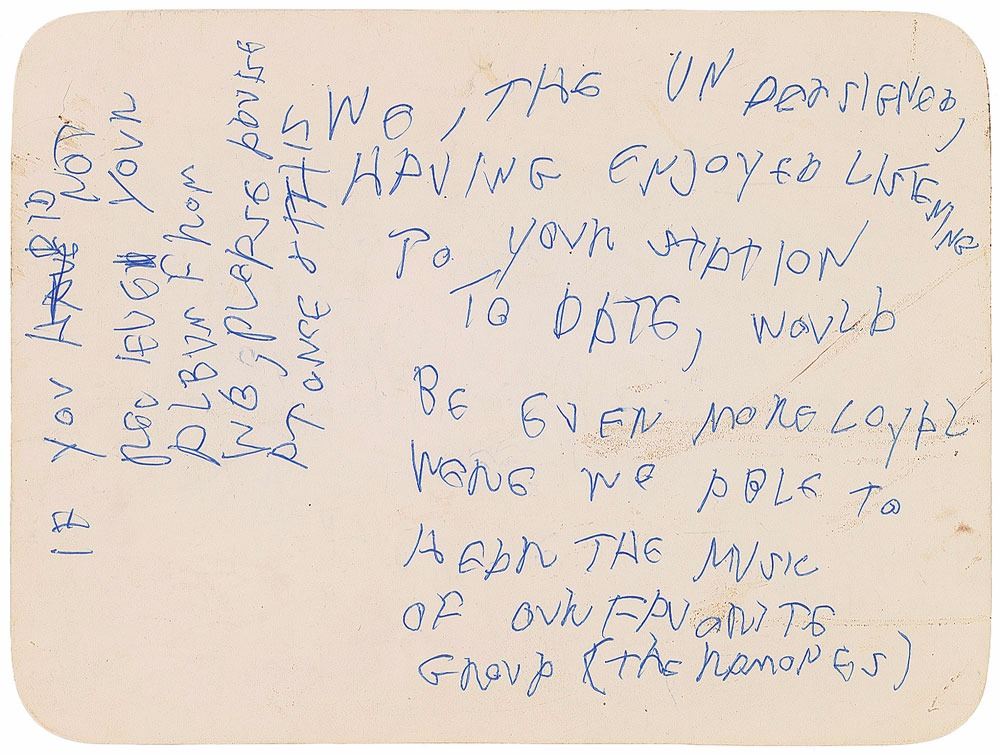 WE, THE UNDERSIGNED,
HAVING ENJOYED LISTENING
TO YOUR STATION
TO DATE, WOULD
BE EVEN MORE LOYAL
WERE WE ABLE TO
HEAR THE MUSIC
OF OUR FAVORITE
GROUP (THE RAMONES)
IF YOU DID NOT
YOUR
ALBUM FROM
WB, PLEASE ADVISE
AT ONCE & THIS